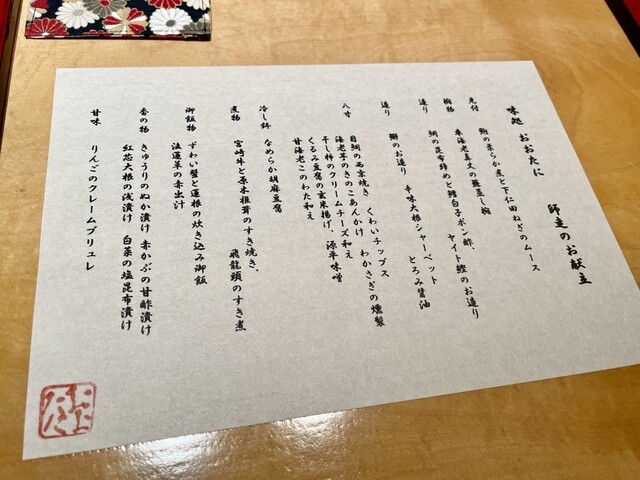 味処 おおたに 師走のお献立
先付 鮑の柔らか煮と下仁田ねぎのムース
椀物 車海老真丈の蕪蒸し椀
造り 鯛の昆布締めと鱈白子ポン酢、ヤイト鰹のお造り
造り 鰤のお造り 辛味大根シャーベット とろみ醤油
八寸 目鯛の西京焼き くわいチップス わかさぎの燻製
海老芋のきのこあんかけ
干し柿のクリームチーズ和え
くるみ豆腐の玄米揚げ、源平味噌
甘海老このわた和え
冷し鉢 なめらか胡麻豆腐
煮物 宮崎牛と原木椎茸のすき焼き、飛龍頭のすき煮
御飯物 ずわい蟹と蓮根の炊き込み御飯
法蓮草の赤出汁
香の物 きゅうりのぬか漬け 赤かぶの甘酢漬け
紅芯大根の浅漬け 白菜の塩昆布漬け
甘味 りんごのクレームブリュレ